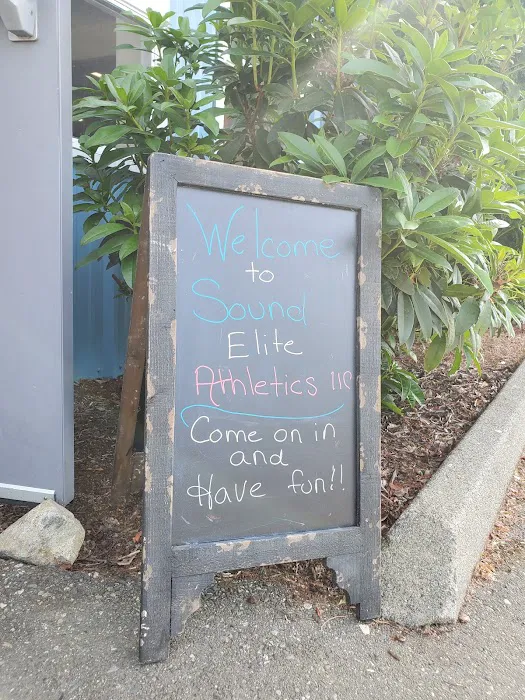 Welcome
to
Sound
Elite
Athletics llC
Come on in
and
Have fun!!